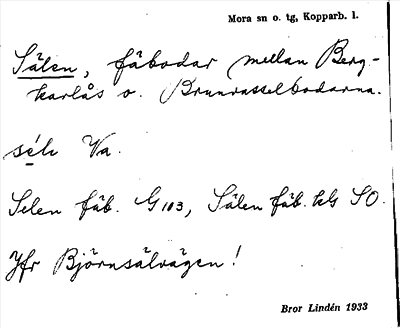 Mora sn o. tg, Kopparb. l.
Sälen, fäbodar mellan Berg-
karlås o. Brunvasselbodarna.
séln Va.
Selen fäb. G103, Sälen fäb. kls SO.
Jfr Björnsälvägen!
Bror Lindén 1933